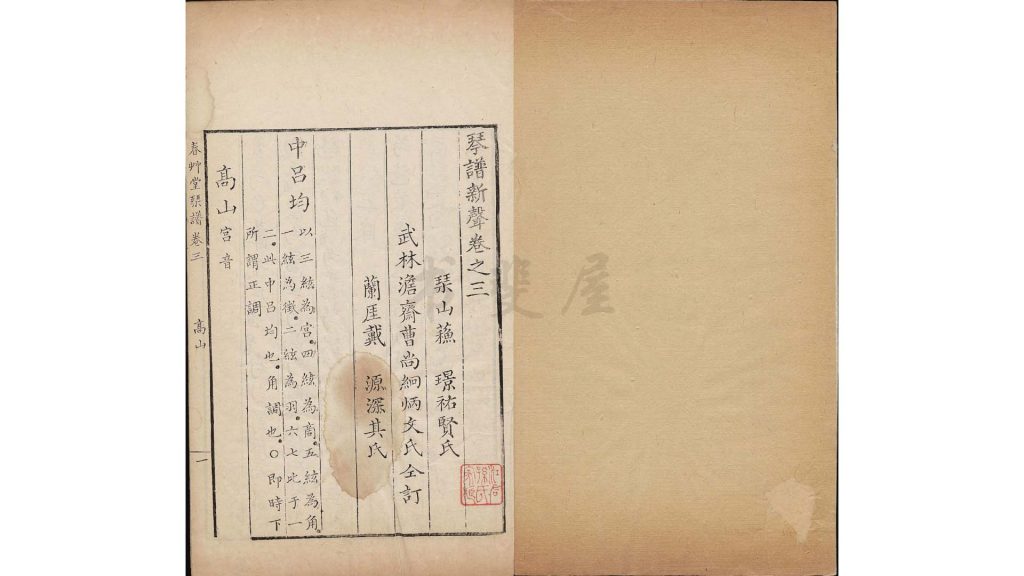 琴譜新聲卷之三
琹山蘓 璟祐賢氏
武林澹齋曹尚絅炳文氏仝訂
蘭厓戴 源深其氏
中呂均 以三絃為宮。四絃為商。五絃為角。
一絃為徵。二絃為羽。六七比于一
二。此中呂均也。角調也。〇即時下
所謂正調
髙山 宮音
春艸堂琹譜卷三 髙山 一